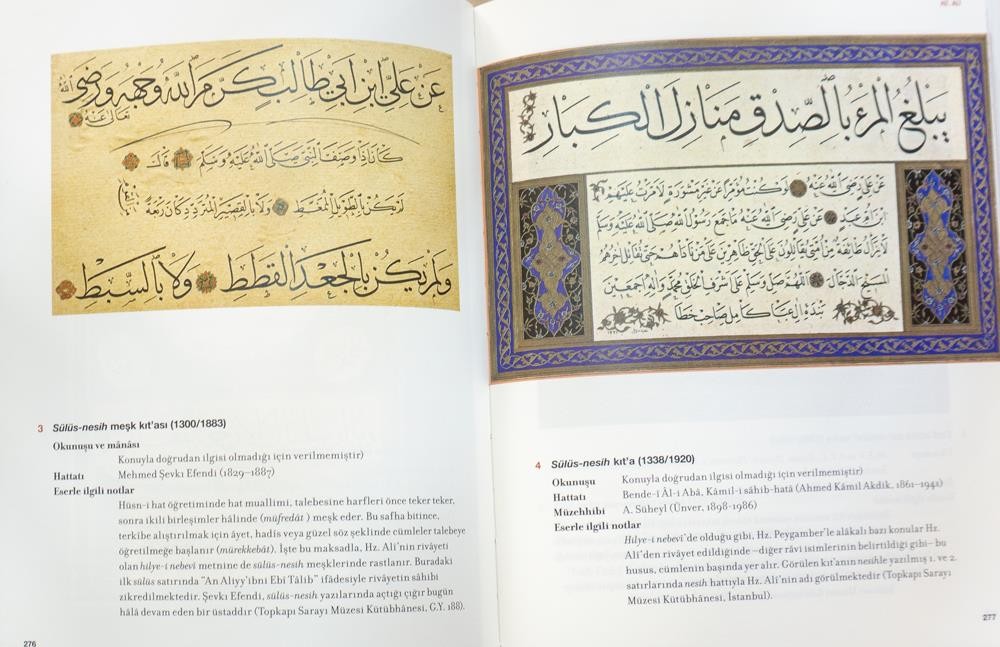 عن علي ابن ابي طالب كرم الله وجهه ورضي الله
تعالى عنه
كان اذا وصف النبي صلى الله عليه وسلم قال
لم يكن بالطويل الممغط ولا بالقصير المتردد كان ربعة
ولم يكن بالجعد القطط ولا بالسبط
3 Sülüs-nesih meşk kıt'ası (1300/1883)
Okunuşu ve mânâsı
Konuyla doğrudan ilgisi olmadığı için verilmemiştir)
Hattatı Mehmed Şevkı Efendi (1829–1887)
Eserle ilgili notlar
Hüsn-i hat öğretiminde hat muallimi, talebesine harfleri önce teker teker,
sonra ikili birleşimler hâlinde (müfredât ) meşk eder. Bu safha bitince,
terkibe alıştırmak için âyet, hadîs veya güzel söz şeklinde cümleler talebeye
öğretilmeğe başlanır (mürekkebât). İşte bu maksadla, Hz. Alî'nin rivâyeti
olan hilye-i nebevî metnine de sülüs-nesih meşklerinde rastlanır. Buradaki
ilk sülüs satırında "An Aliyy'ibni Ebî Tâlib" ifâdesiyle rivâyetin sâhibi
zikredilmektedir. Şevkı Efendi, sülüs-nesih yazılarında açtığı çığır bugün
hâlâ devam eden bir üstaddır (Topkapı Sarayı Müzesi Kütübhânesi, G.Y. 188).
276
يبلغ المرء بالصدق منازل الكبار
عن علي رضي الله عنه لو كنت مؤمرا عن غير مشورة لامرت عليهم
ابن ام عبد عن علي رضي الله عنه ما جمع رسول الله صلى الله عليه وسلم
لا يزال طائفة من امتي يقاتلون على الحق ظاهرين على من ناواهم حتى يقاتل اخرهم
المسيح الدجال اللهم صل وسلم على اشرف الخلق محمد واله اجمعين
بنده ال عبا كامل صاحب خطا
4 Sülüs-nesih kıt'a (1338/1920)
Okunuşu Konuyla doğrudan ilgisi olmadığı için verilmemiştir)
Hattatı Bende-i Âl-i Abâ, Kâmil-i sâhib-hatâ (Ahmed Kâmil Akdik, 1861–1941)
Müzehhibi A. Süheyl (Ünver, 1898-1986)
Eserle ilgili notlar
Hilye-i nebevî'de olduğu gibi, Hz. Peygamber'le alâkalı bazı konular Hz.
Alî'den rivâyet edildiğinde –diğer râvi isimlerinin belirtildiği gibi– bu
husus, cümlenin başında yer alır. Görülen kıt'anın nesihle yazılmış 1. ve 2.
satırlarında nesih hattıyla Hz. Alî'nin adı görülmektedir (Topkapı Sarayı
Müzesi Kütübhânesi, İstanbul).
277